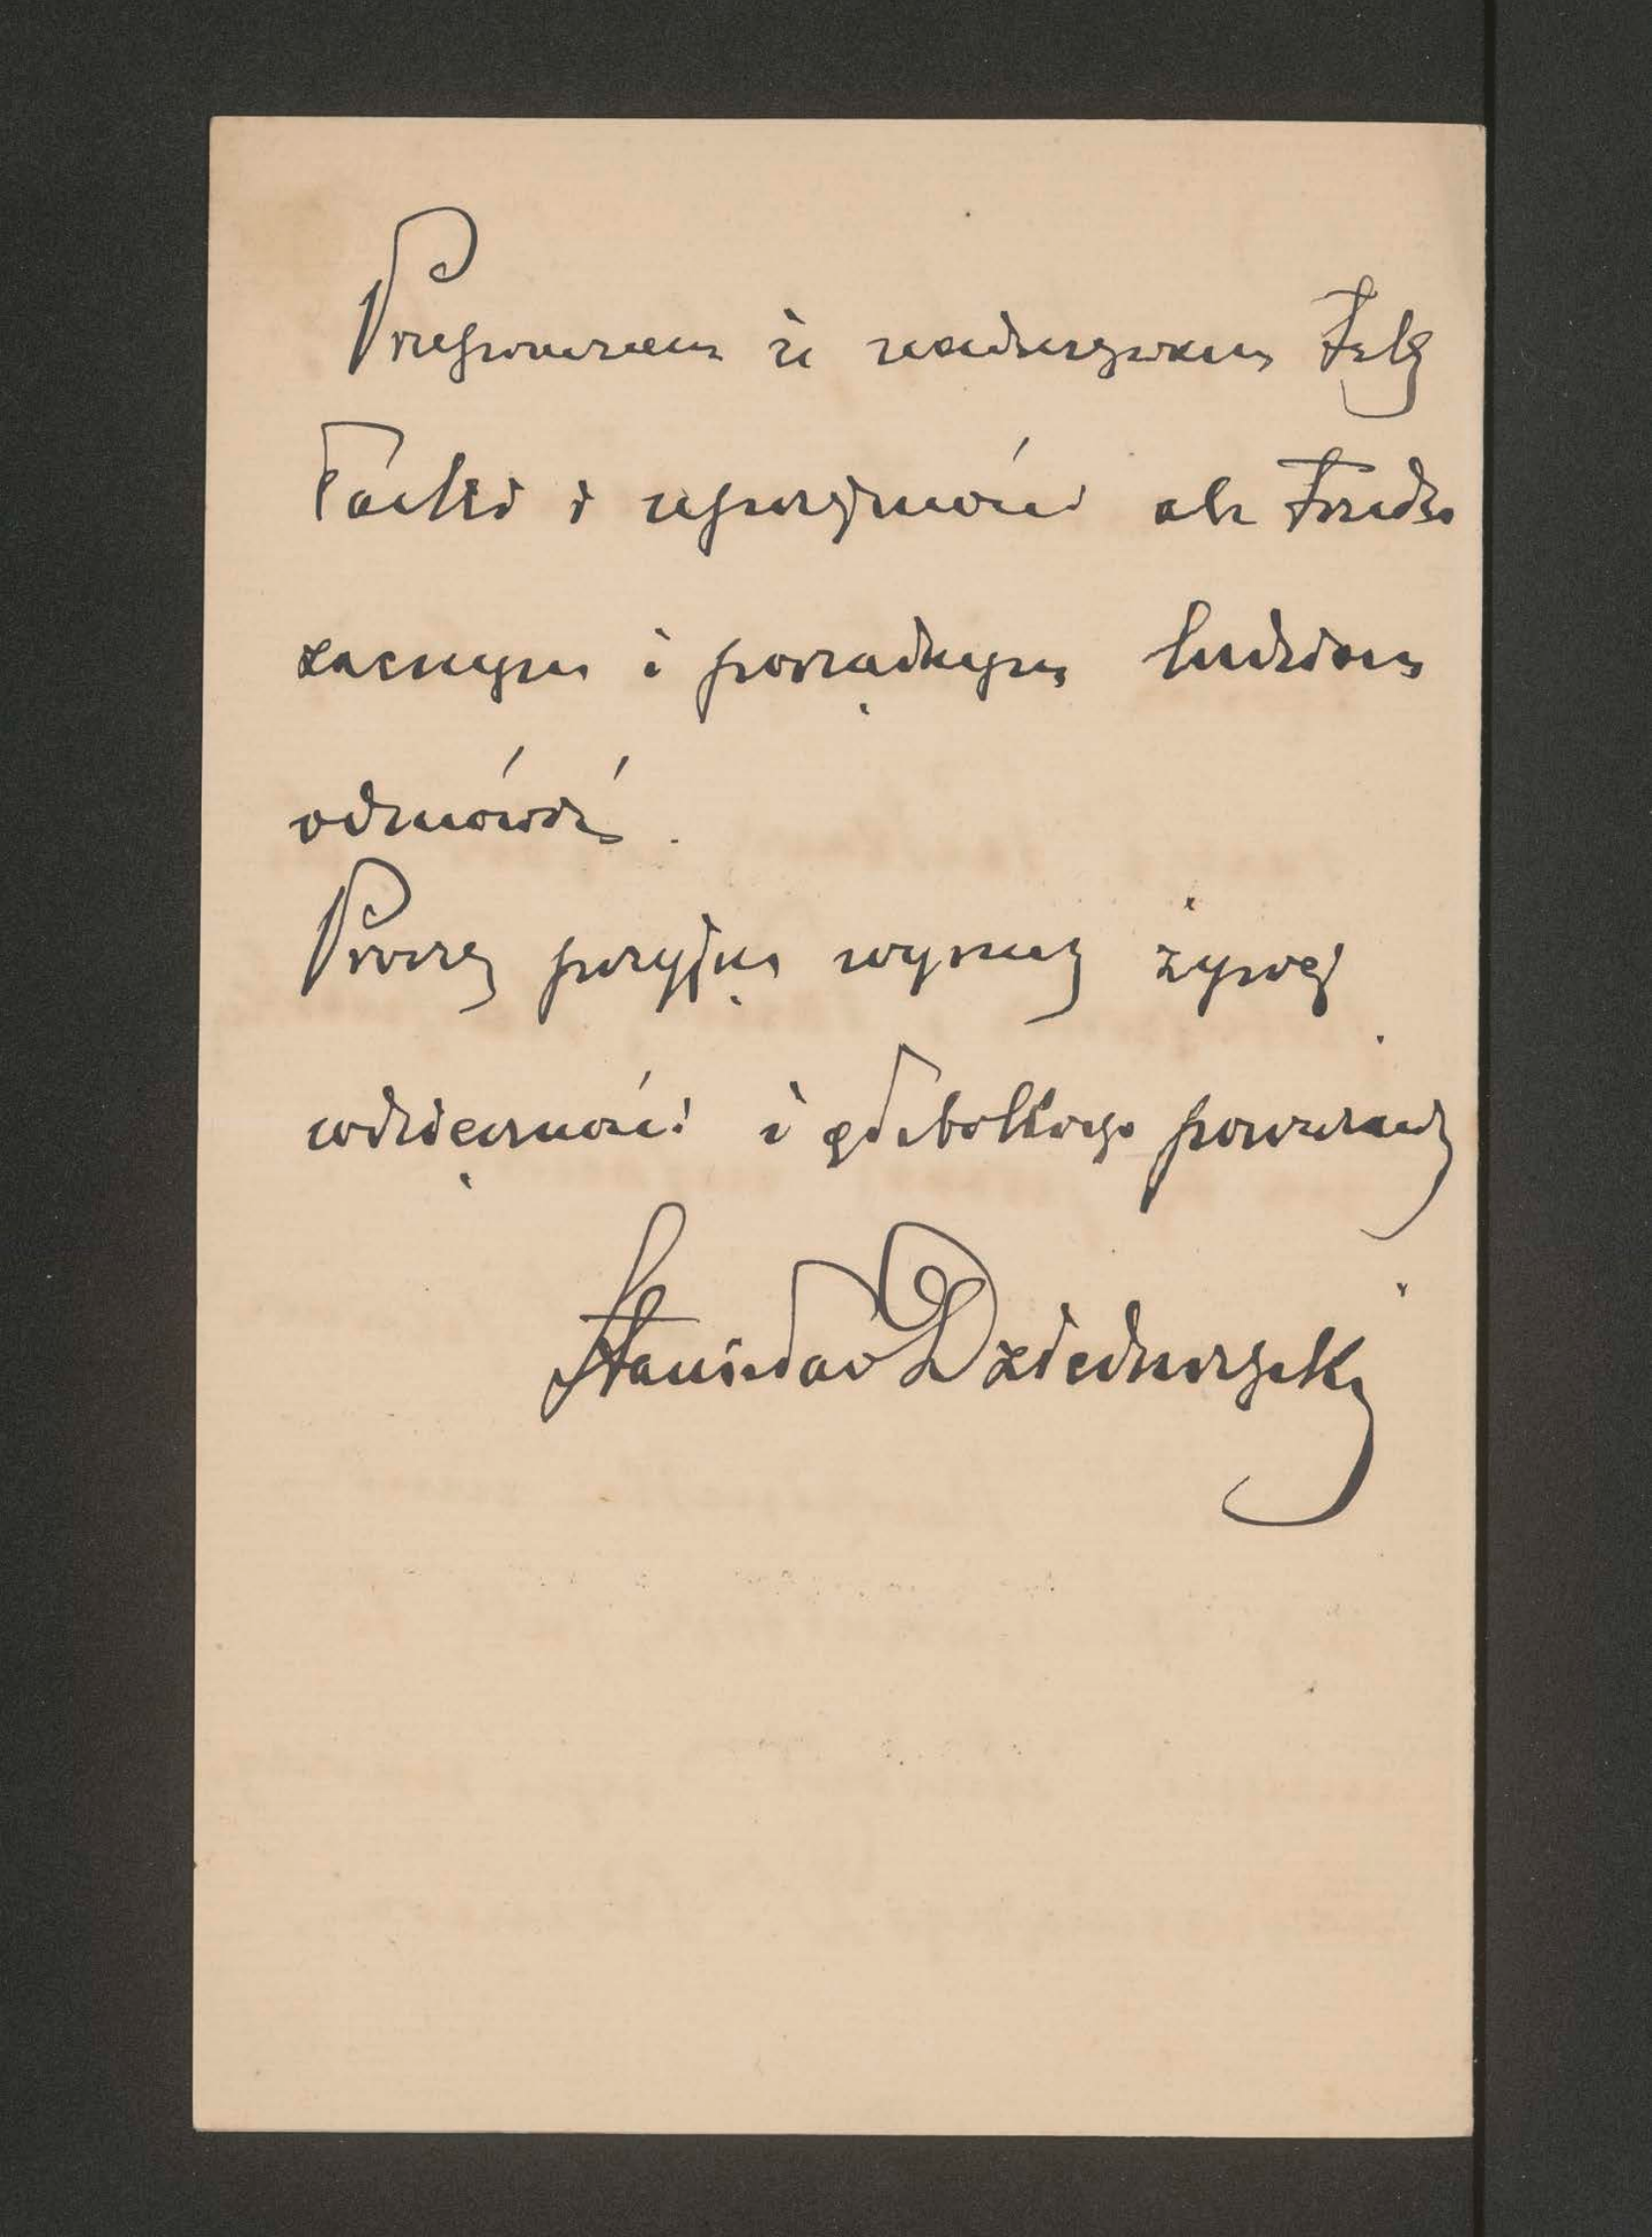 Przepraszam że nadużywam Tyle
łaski i uprzejmości ale Trudno
zacnym i porządnym ludziom
odmówić.
Proszę przyjąć wyrazy żywej
wdzięczności i głębokiego poważania
Stanisław